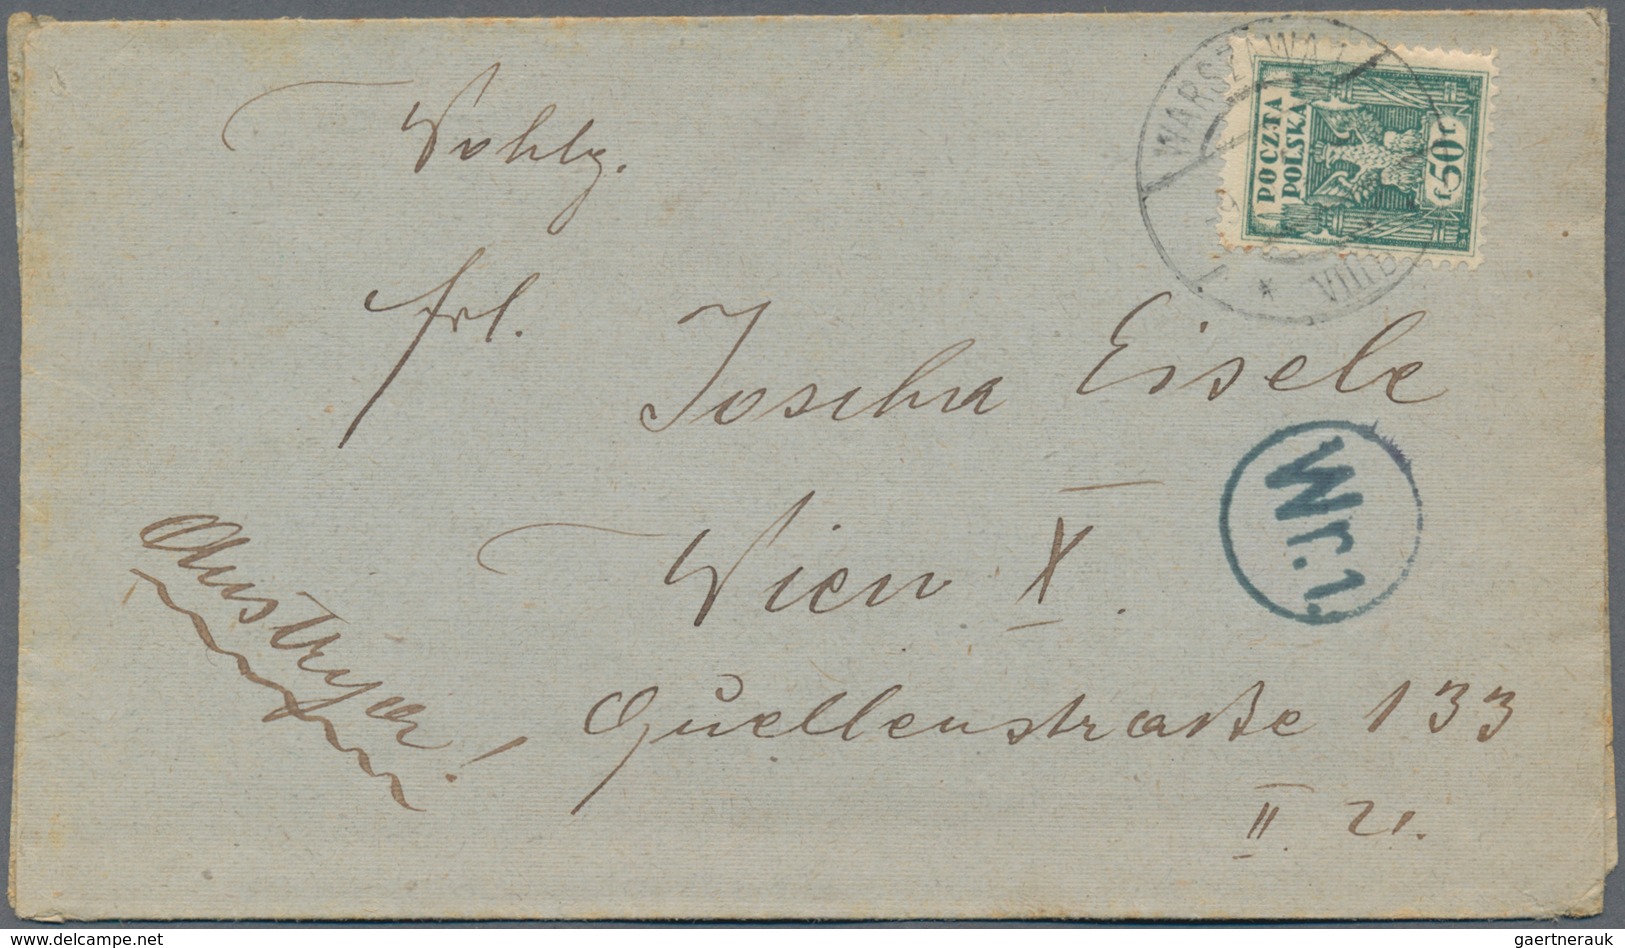 WARSZAWA 1
POCZTA
POLSKA
f. 50 f.
* VIII B
Wohlg.
Frl. Joscha Eisele
Wr. 1.
Wien X.
Austrya!
Quellenstraße 133
II 21.
delcampe.net
gaertnerauk